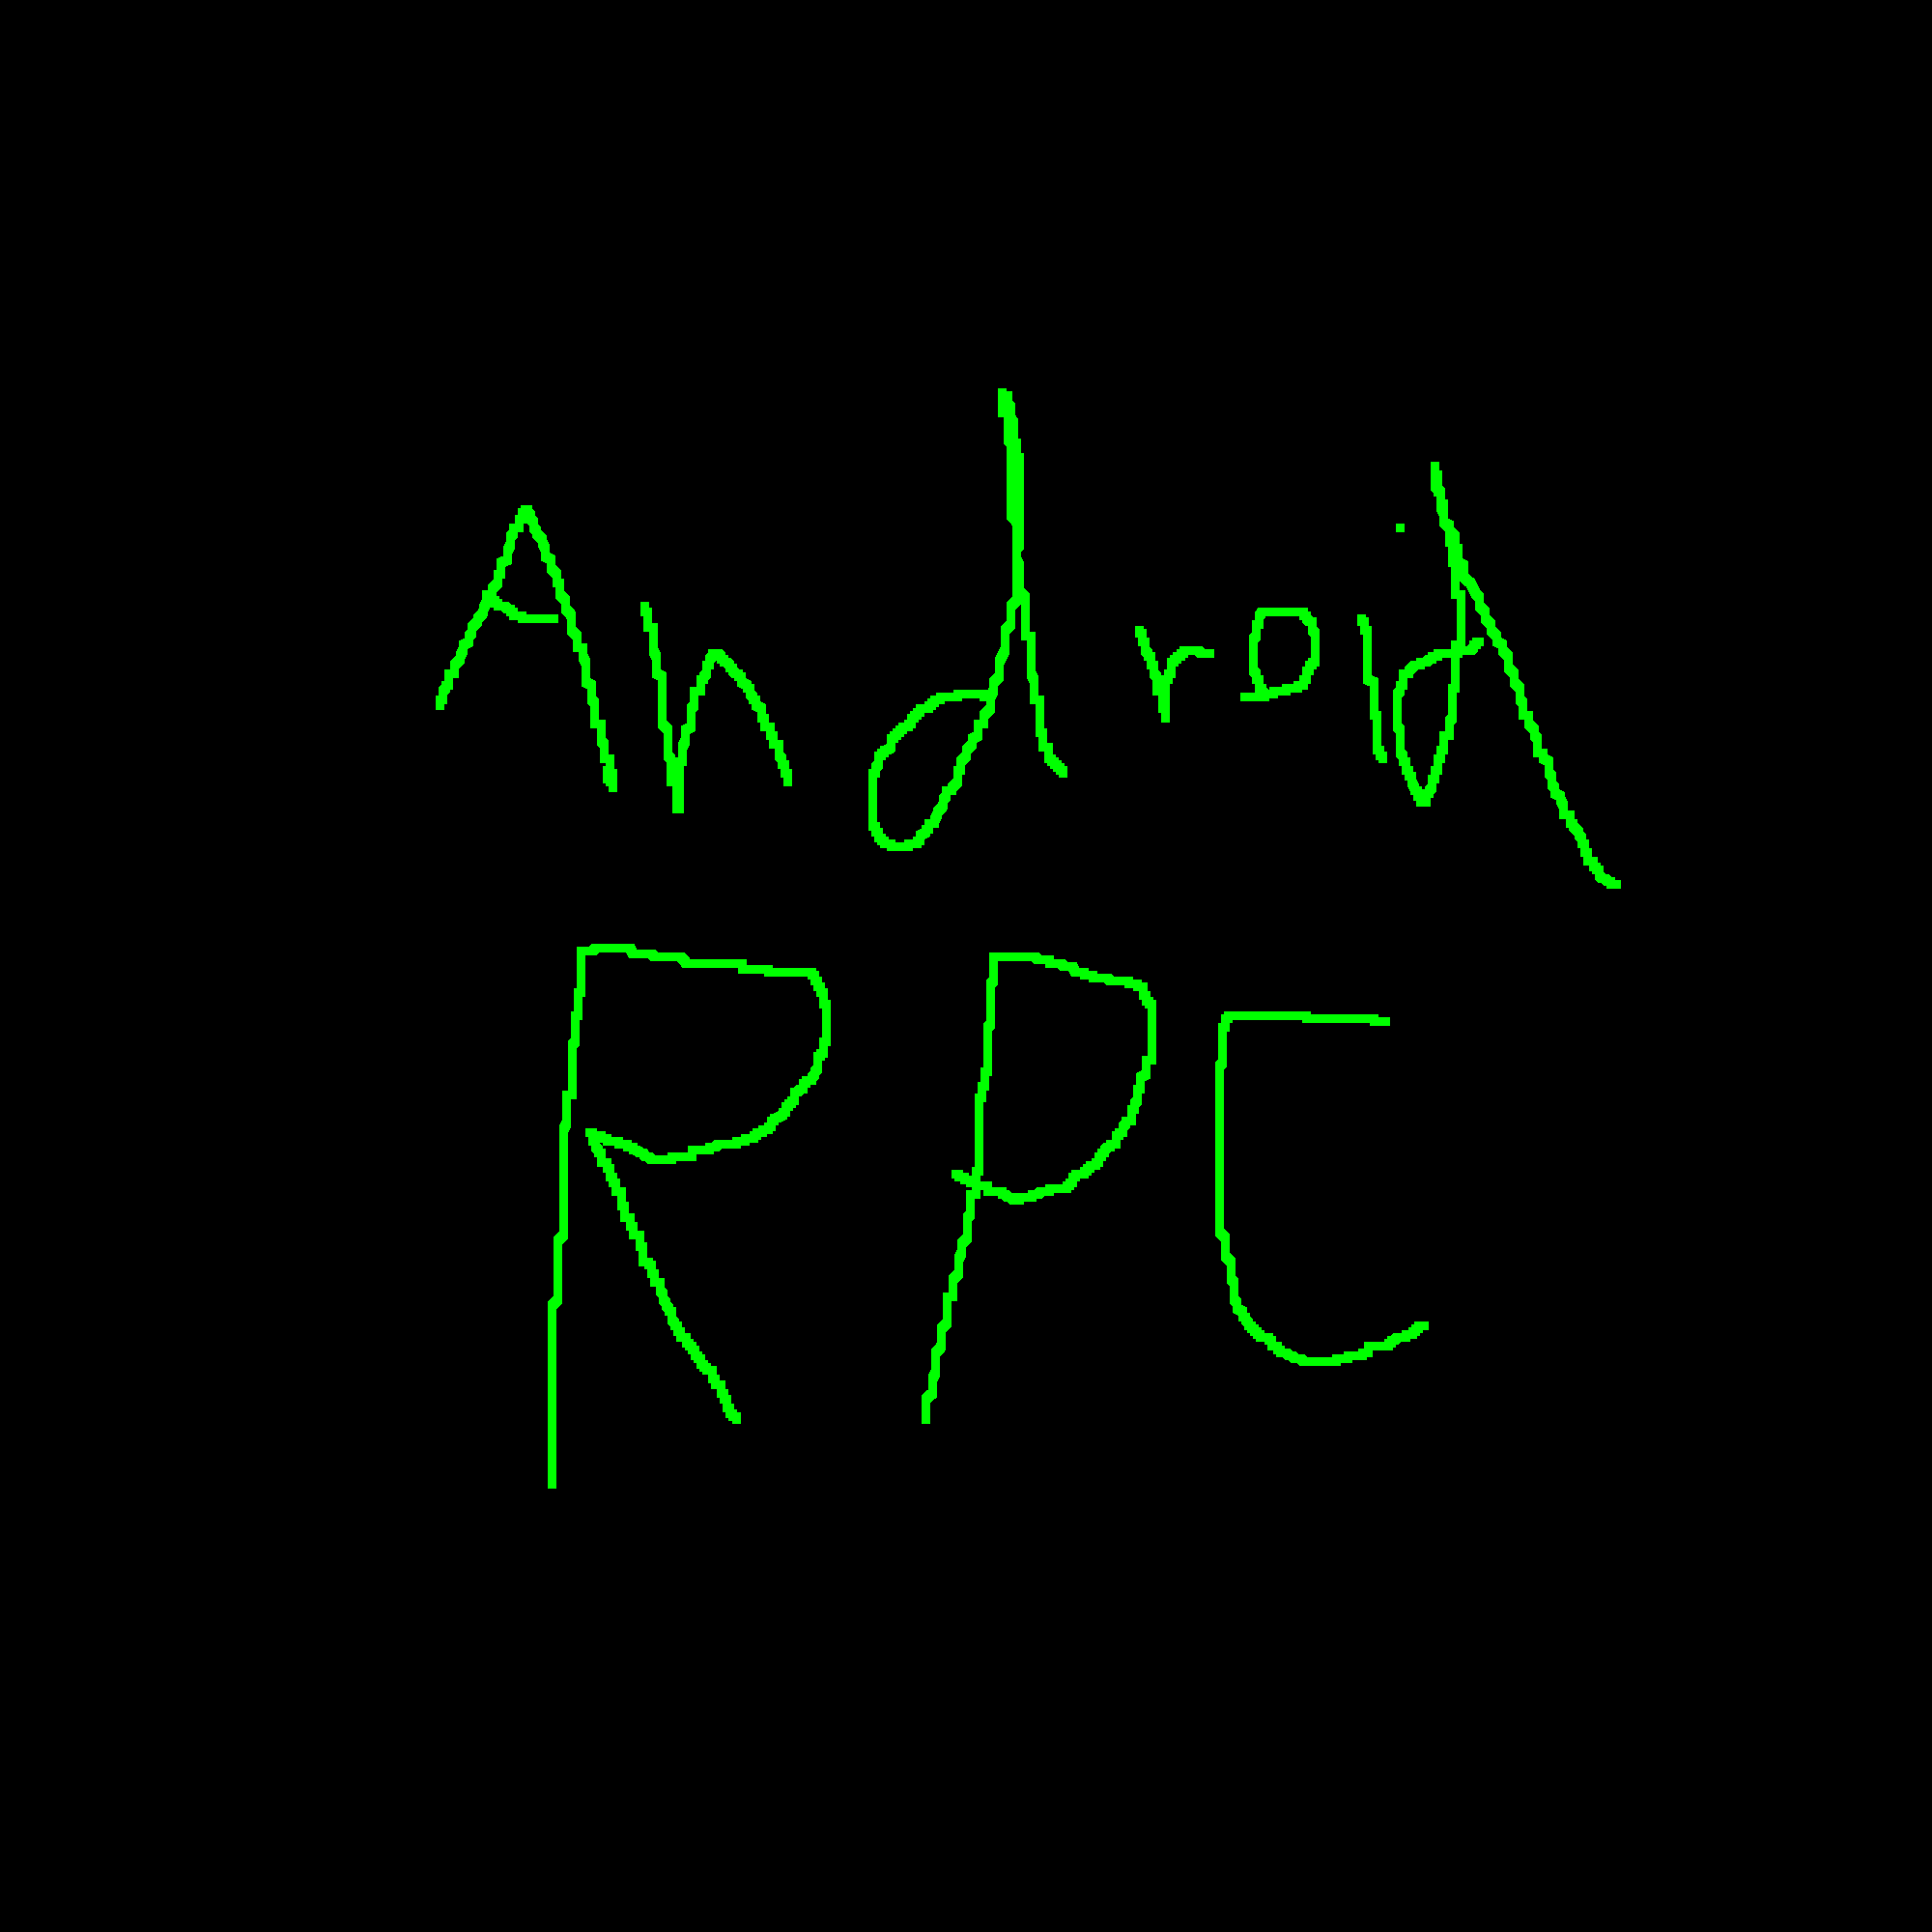 Android
RPC